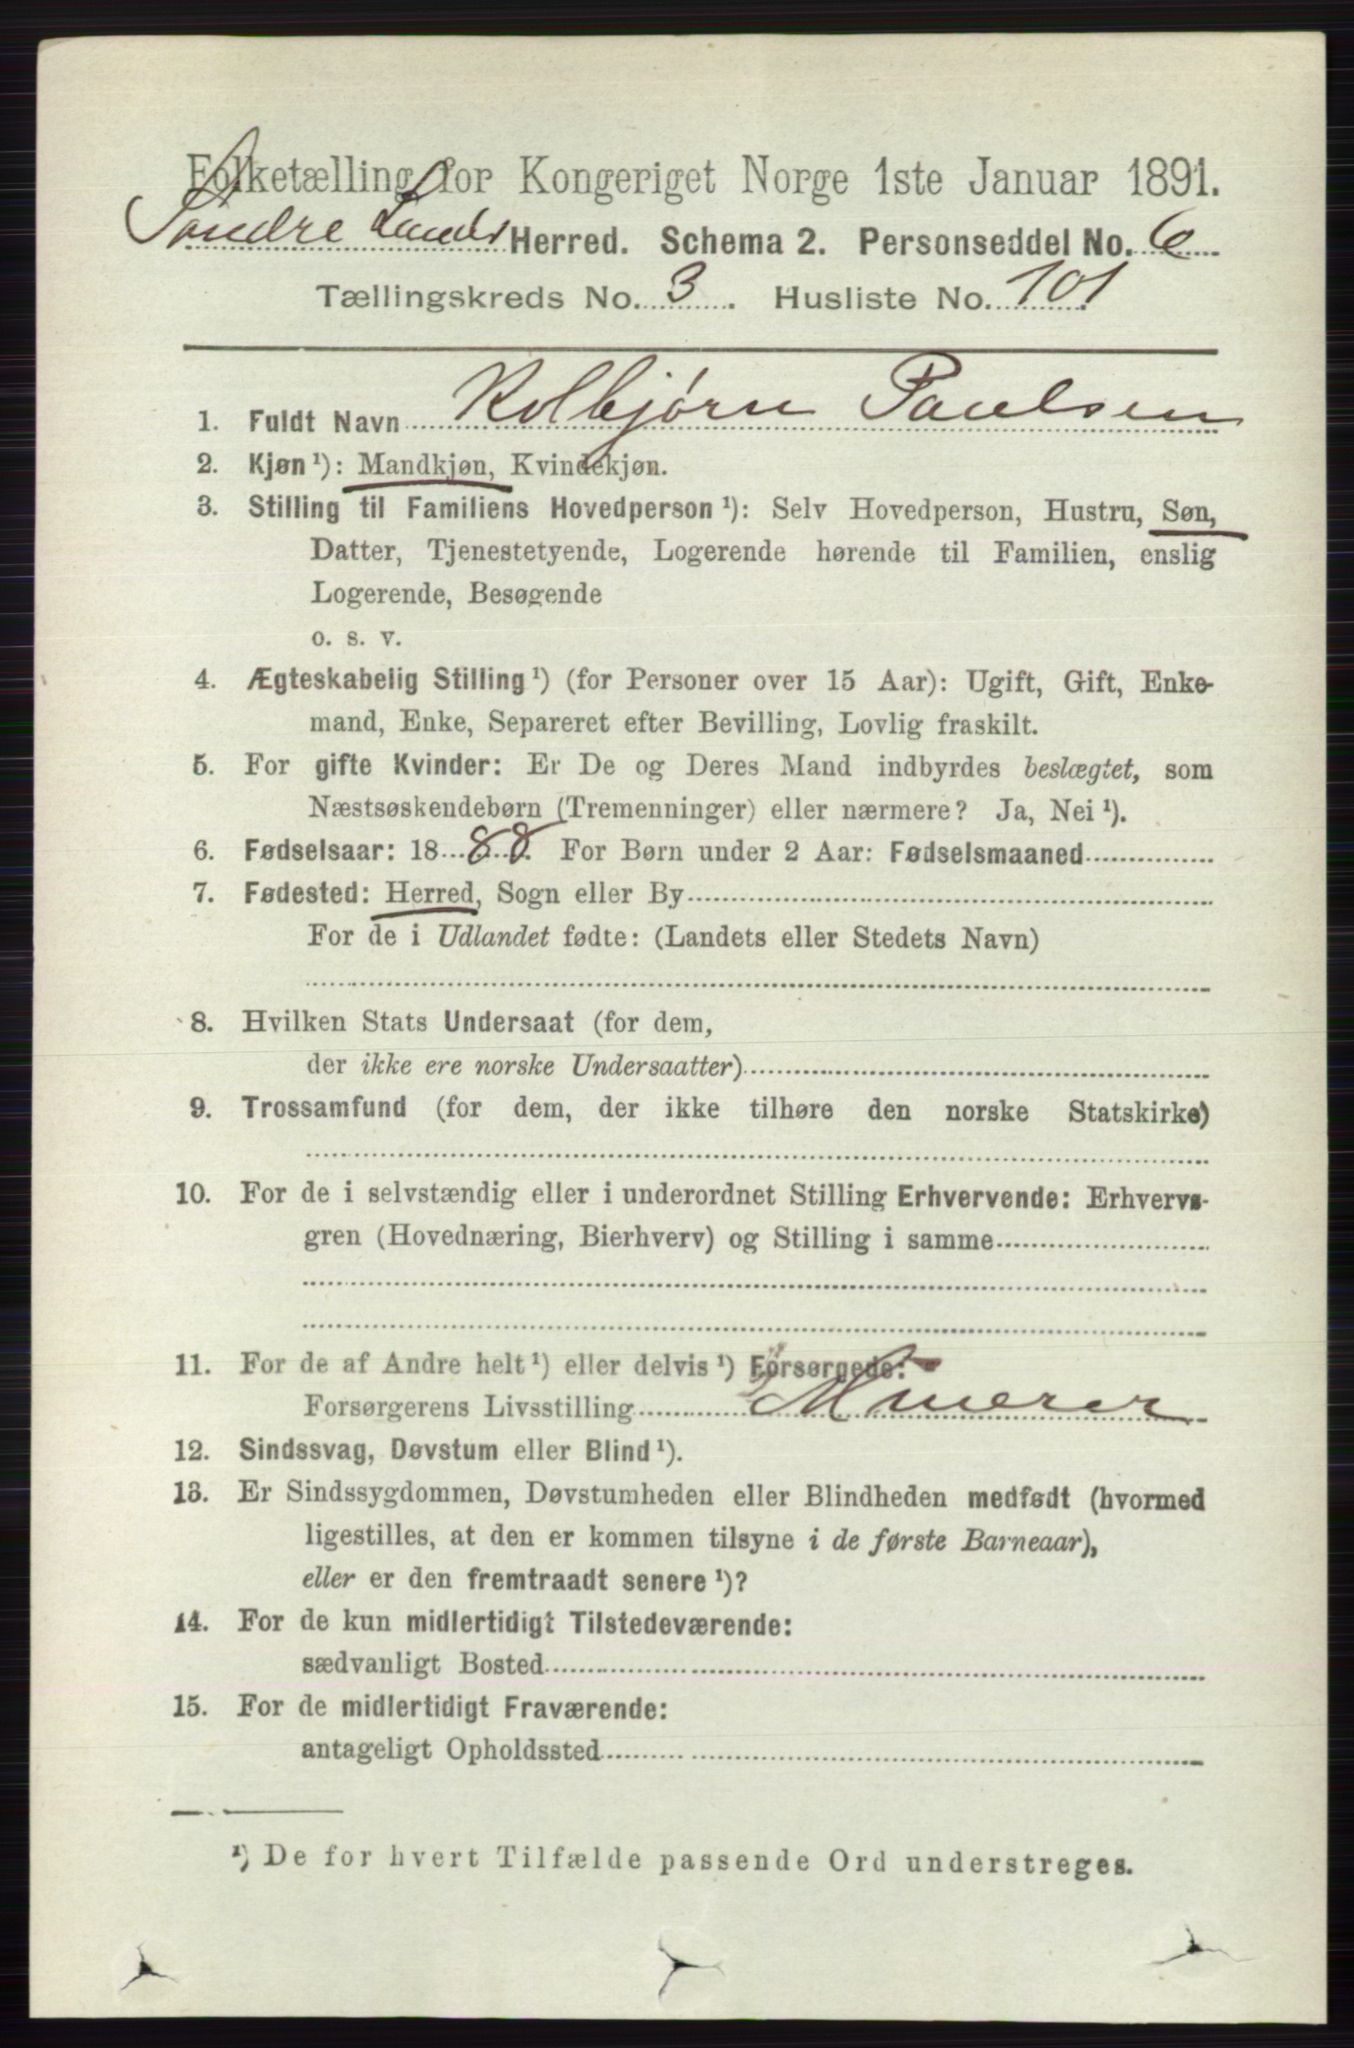 Folketælling for Kongeriget Norge 1ste Januar 1891.
Søndre Lands Herred. Schema 2. Personseddel No. 6
Tællingskreds No. 3. Husliste No. 101
1. Fuldt Navn Kolbjørn Paulsen
2. Kjøn ¹): Mandkjøn, Kvindekjøn.
3. Stilling til Familiens Hovedperson ¹): Selv Hovedperson, Hustru, Søn,
Datter, Tjenestetyende, Logerende hørende til Familien, enslig
Logerende, Besøgende
o. s. v.
4. Ægteskabelig Stilling ¹) (for Personer over 15 Aar): Ugift, Gift, Enke-
mand, Enke, Separeret efter Bevilling, Lovlig fraskilt.
5. For gifte Kvinder: Er De og Deres Mand indbyrdes beslægtet, som
Næstsøskendebørn (Tremenninger) eller nærmere? Ja, Nei ¹).
6. Fødselsaar: 1888. For Børn under 2 Aar: Fødselsmaaned
7. Fødested: Herred, Sogn eller By
For de i Udlandet fødte: (Landets eller Stedets Navn)
8. Hvilken Stats Undersaat (for dem,
der ikke ere norske Undersaatter)
9. Trossamfund (for dem, der ikke tilhøre den norske Statskirke)
10. For de i selvstændig eller i underordnet Stilling Erhvervende: Erhvervs-
gren (Hovednæring, Bierhverv) og Stilling i samme
11. For de af Andre helt ¹) eller delvis ¹) Forsørgede:
Forsørgerens Livsstilling Murer
12. Sindssvag, Døvstum eller Blind ¹).
13. Er Sindssygdommen, Døvstumheden eller Blindheden medfødt (hvormed
ligestilles, at den er kommen tilsyne i de første Barneaar),
eller er den fremtraadt senere ¹)?
14. For de kun midlertidigt Tilstedeværende:
sædvanligt Bosted
15. For de midlertidigt Fraværende:
antageligt Opholdssted
¹) De for hvert Tilfælde passende Ord understreges.